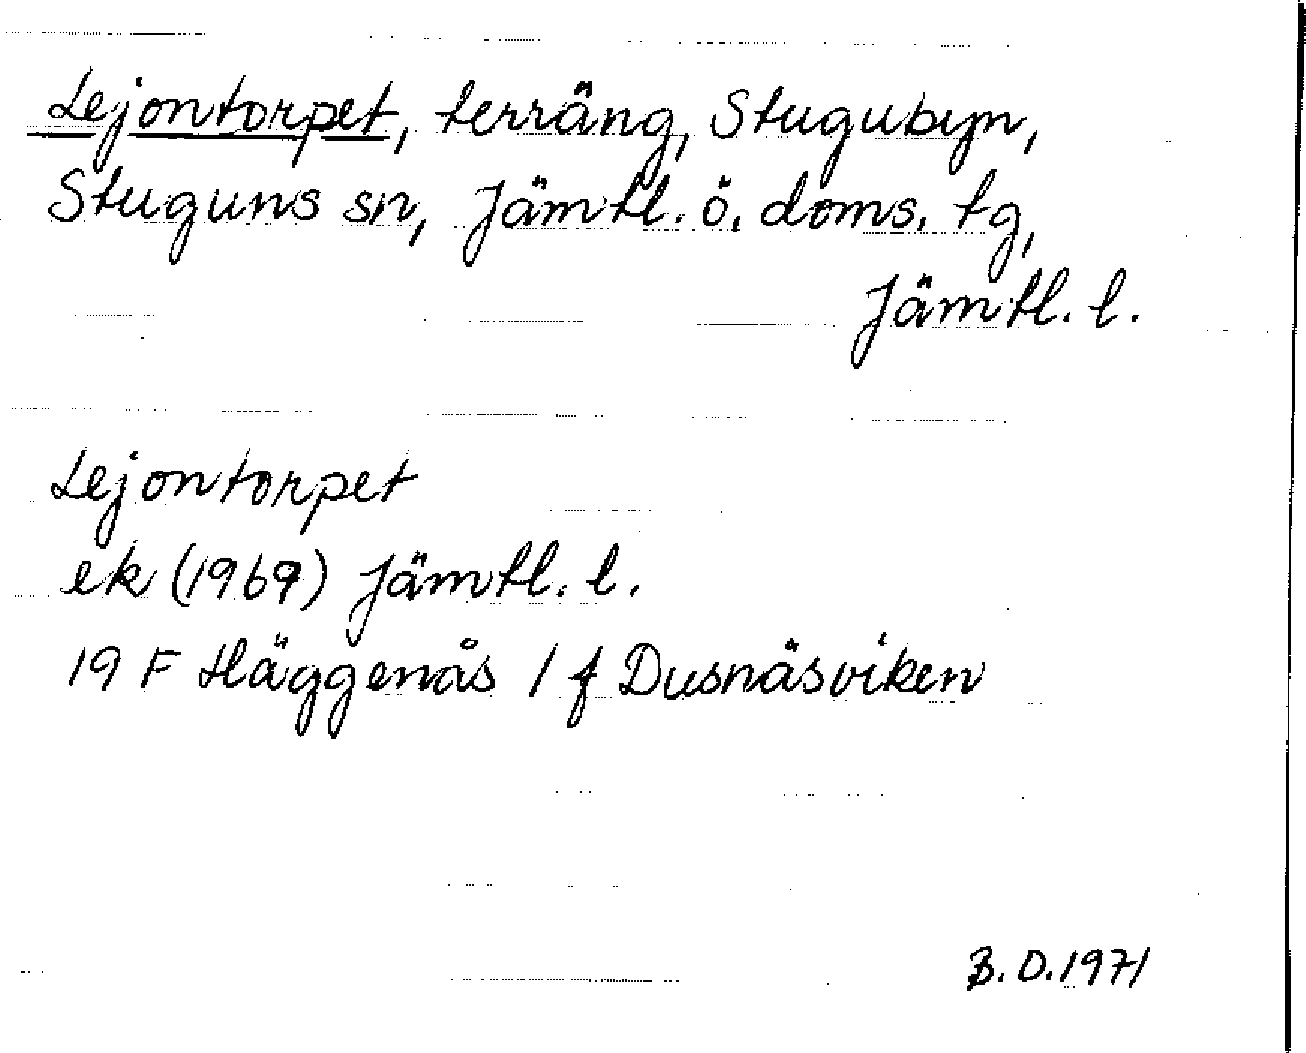 Lejontorpet, terräng, Stugubyn,
Stuguns sn, Jämtl. ö. doms. tg,
Jämtl. l.
Lejontorpet
ek (1969) Jämtl. l.
19 F Häggenås / f Dusnäsviken
B. D. 1971